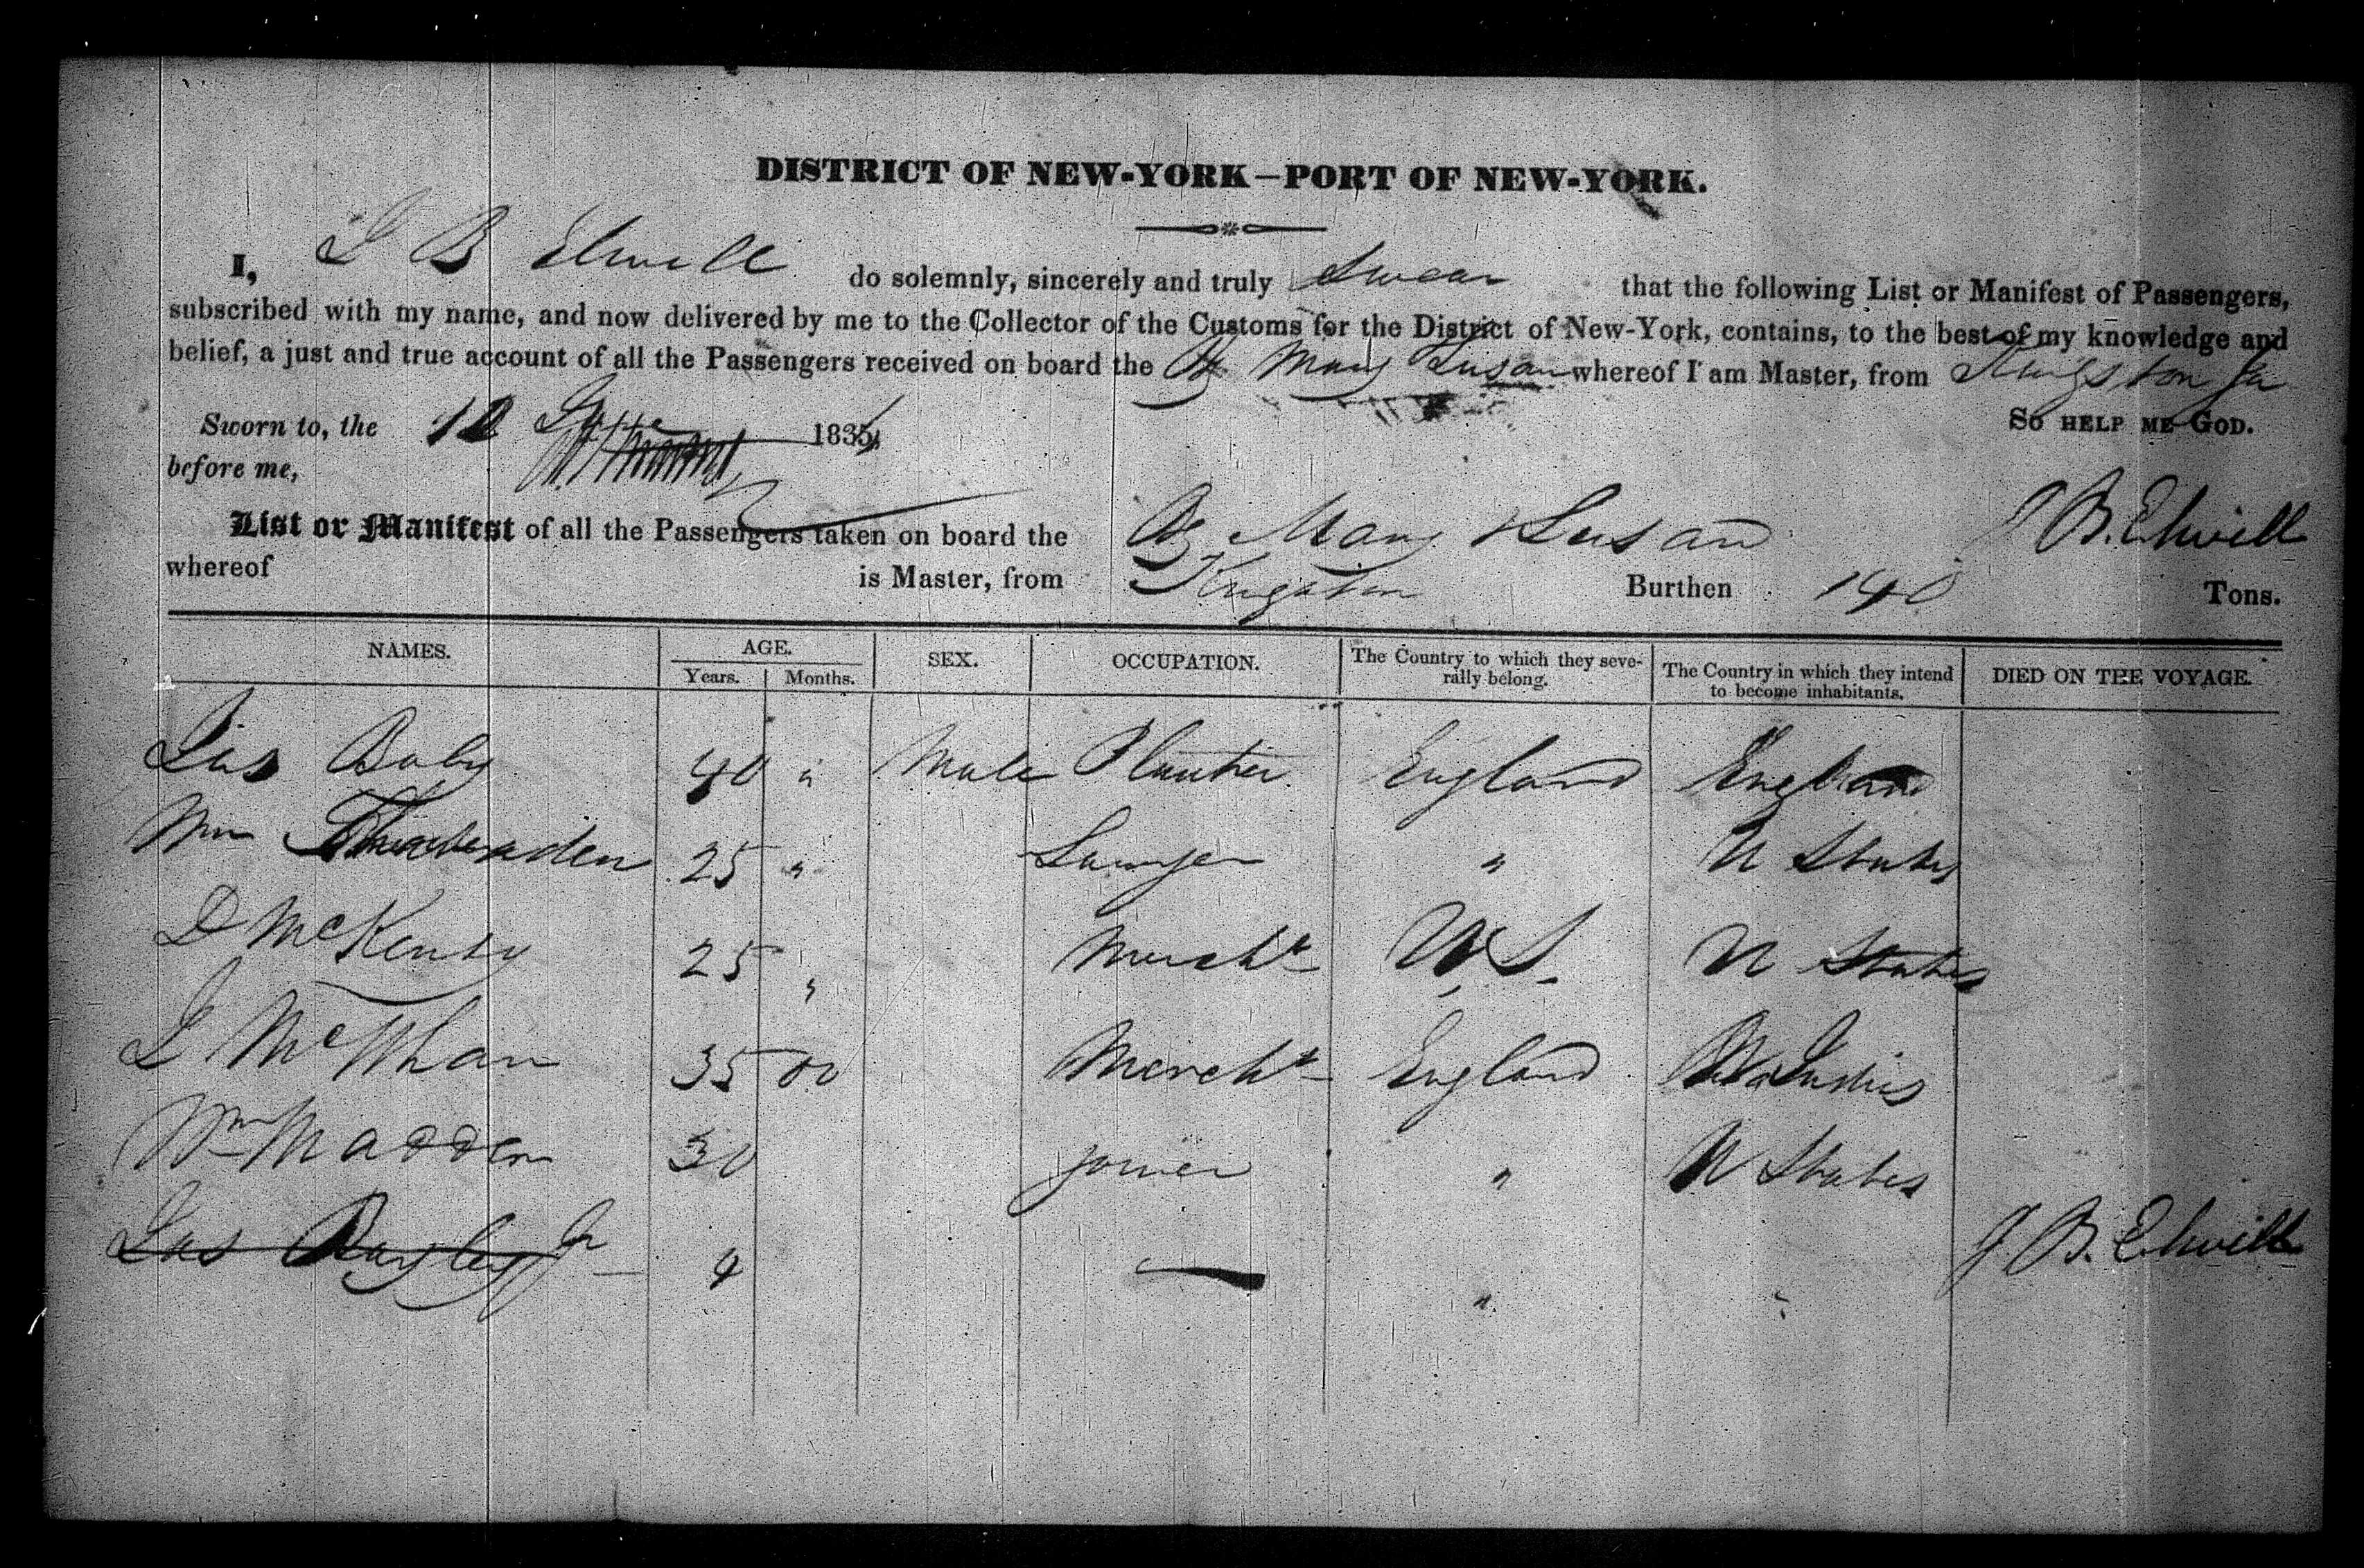 DISTRICT OF NEW-YORK—PORT OF NEW-YORK.
I, J B Elwell do solemnly, sincerely and truly Swear that the following List or Manifest of Passengers,
subscribed with my name, and now delivered by me to the Collector of the Customs for the District of New-York, contains, to the best of my knowledge and
belief, a just and true account of all the Passengers received on board the Bg Mary Susan whereof I am Master, from Kingston Ja
Sworn to, the 10 June 1835 So HELP ME GOD.
before me,
J B. Elwell
List or Manifest of all the Passengers taken on board the Bg Mary Susan
whereof is Master, from Kingston Burthen 140 Tons.
NAMES. AGE. SEX. OCCUPATION. The Country to which they seve- The Country in which they intend DIED ON THE VOYAGE.
Years. Months. rally belong. to become inhabitants.
Jas 40 " Male Planter England England
Wm 25 " Lawyer " U States
D McKenzy 25 " Mercht U.S. U States
J McWhan 35 00 Mercht England W Indies
Wm Madden 30 joiner " U States
Jas Bayley Jr 9 — " "
J. B. Elwell